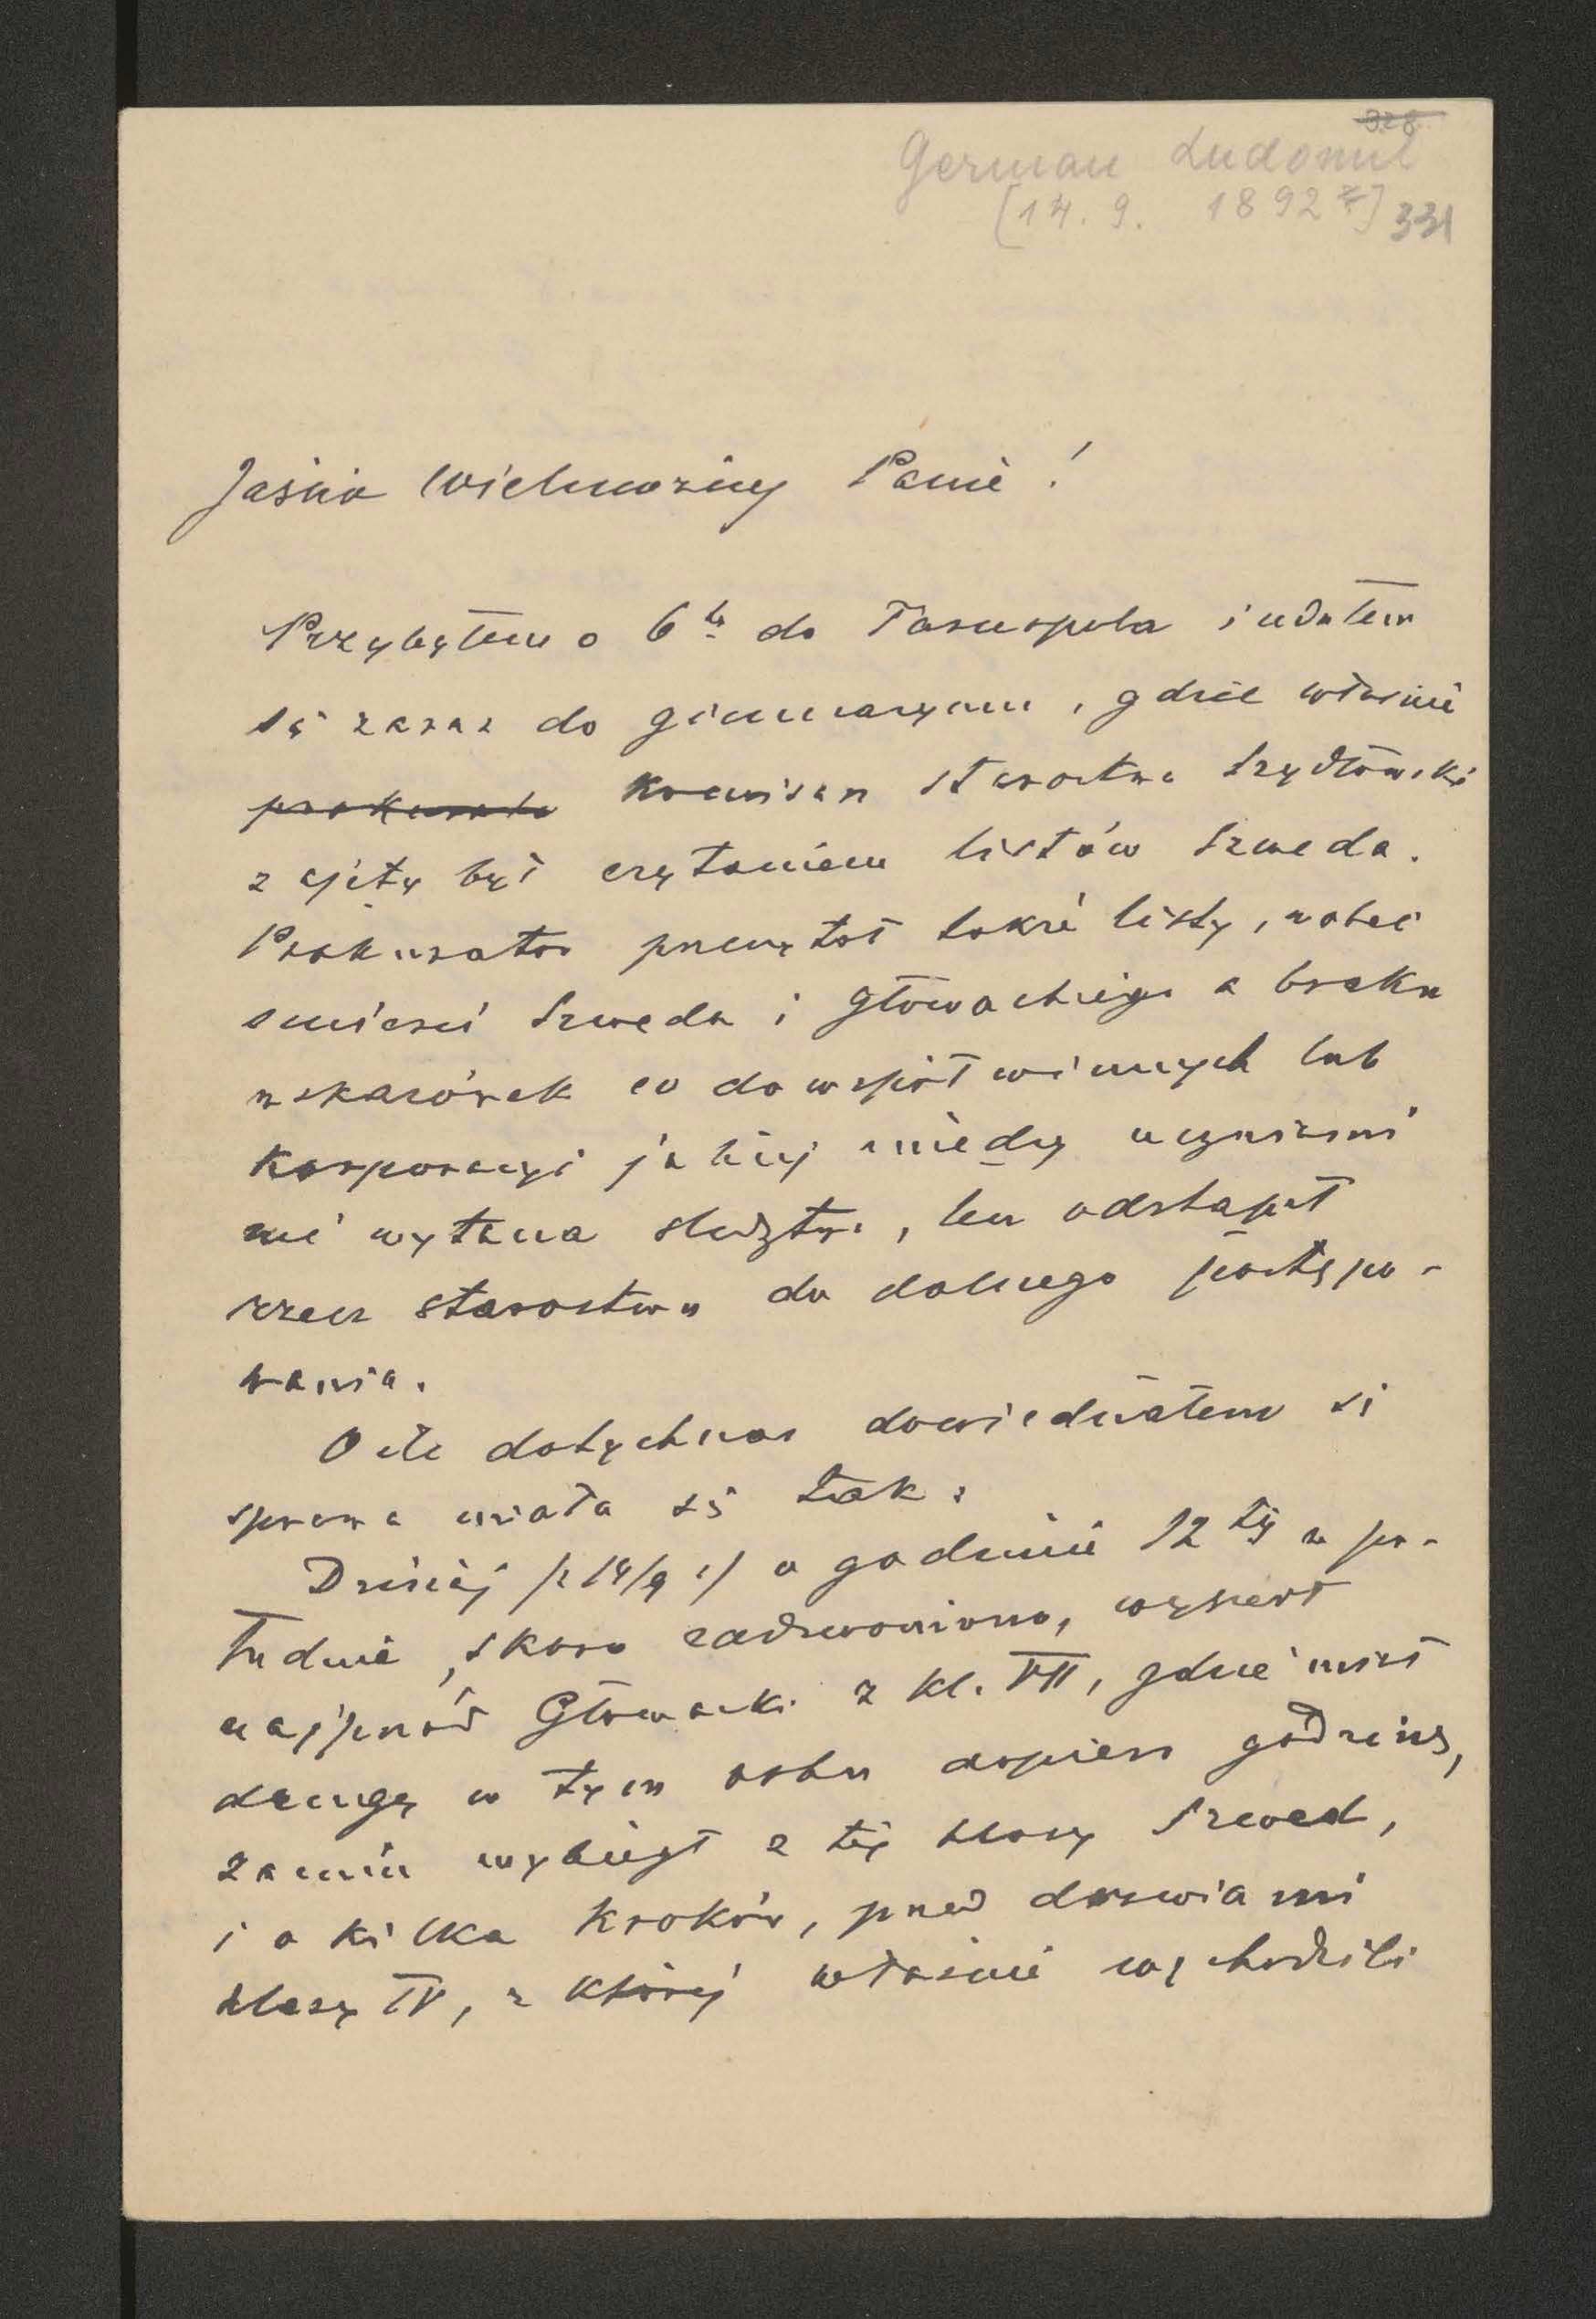 328
German Ludomił
[14. 9. 1892 r.] 331
Jaśnie Wielmożny Panie!
Przybyłem o 6tej do Tarnopola i udałem
się zaraz do gimnazyum, gdzie właśnie
prokurator komisarz starostwa Szydłowski
zajęty był czytaniem listów Szweda.
Prokurator przeczytał także listy, wobec
śmierci Szweda i Głowackiego a braku
wskazówek co do współwinnych lub
korporacyi jakiej między uczniami
nie wytacza śledztwa, lecz odstąpił
rzecz starostwu do dalszego postępo-
wania.
O ile dotychczas dowiedziałem się
sprawa miała się tak:
Dzisiaj /: 14/9 :/ o godzinie 12tej w po-
łudnie, skoro zadzwoniono, wyszedł
najprzód Głowacki z kl. VII, gdzie miał
drugą w tym roku dopiero godzinę,
za nim wybiegł z tej klasy Szwed,
i o kilka kroków, przed drzwiami
klasy IV, z której właśnie wychodzili